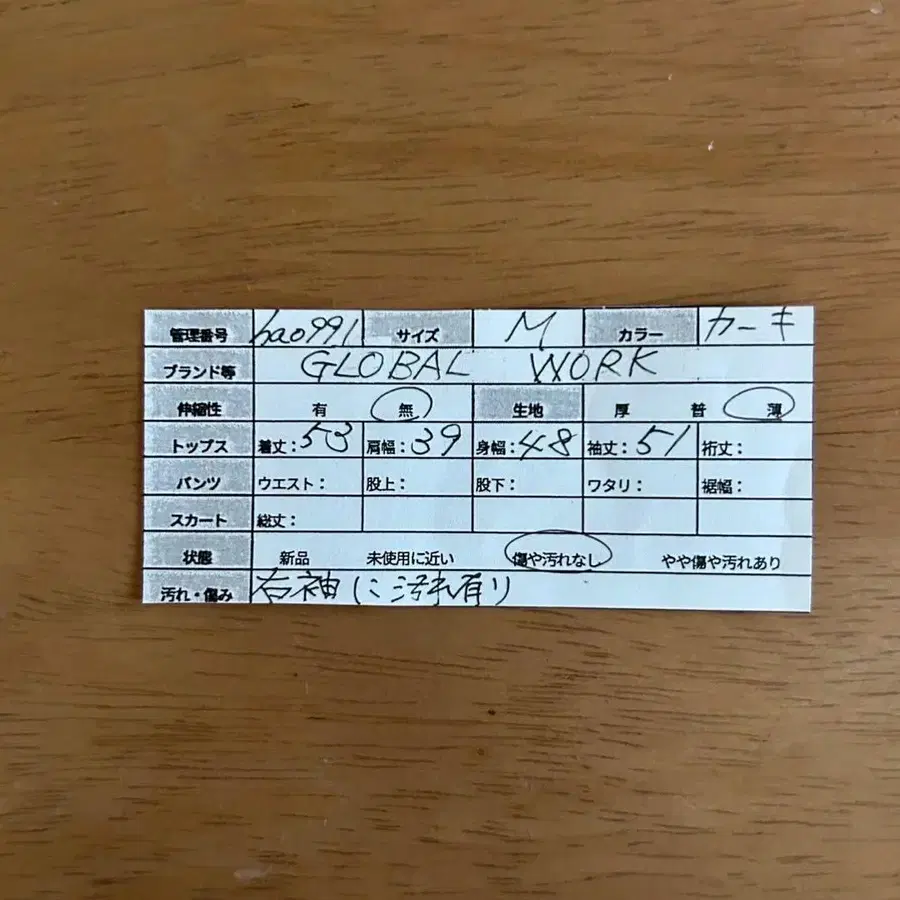 管理番号 hao991 サイズ M カラー カーキ
ブランド等 GLOBAL WORK
伸縮性 有 無 生地 厚 普 薄
トップス 着丈:53 肩幅:39 身幅:48 袖丈:51 裄丈:
パンツ ウエスト: 股上: 股下: ワタリ: 裾幅:
スカート 総丈:
状態 新品 未使用に近い 傷や汚れなし やや傷や汚れあり
汚れ・傷み 右袖に汚れ有り